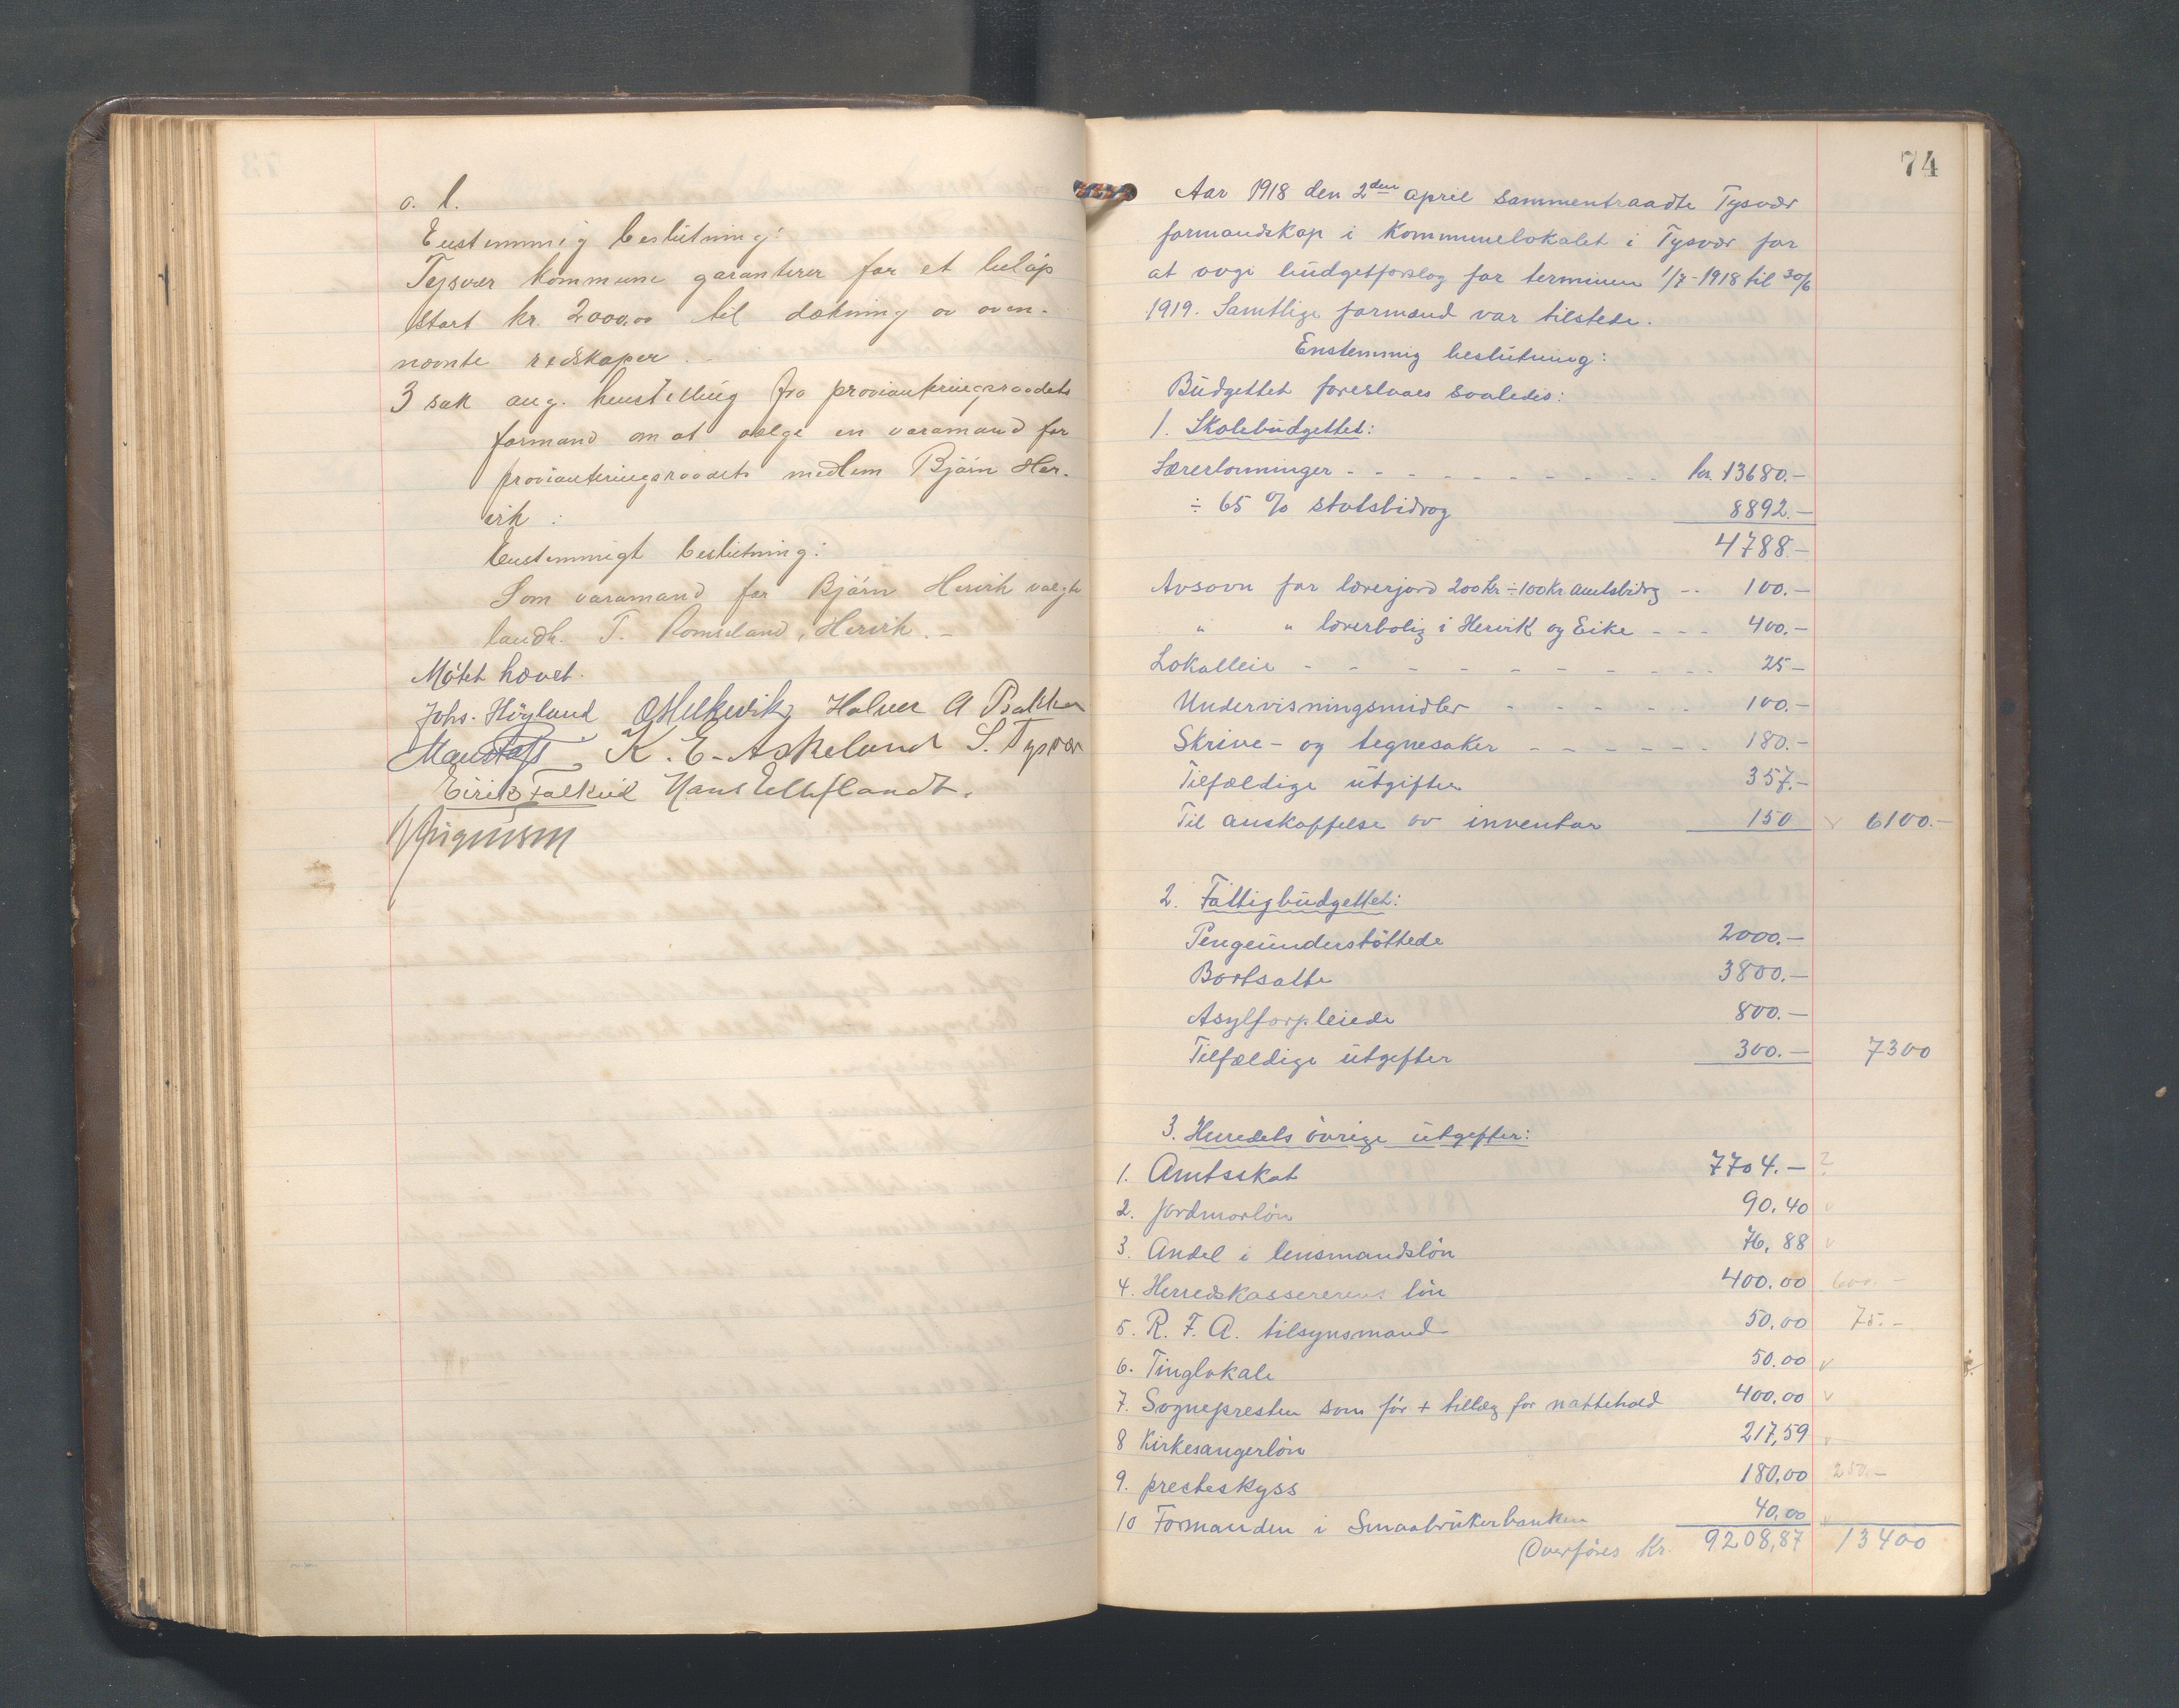 o. l.
Enstemmig beslutning:
Tysvær kommune garanterer for et beløp
stort kr. 2000,00 til dækning av oven-
nævnte redskaper. -
3 sak ang. henstelling fra provianteringsraadets
formand om at vælge en varamand for
provianteringsraadets medlem Bjørn Her-
vik:
Enstemmigt beslutning:
Som varamand for Bjørn Hervik valgte
landh. T. Romseland, Hervik. -
Møtet hævet.
Johs. Høyland Halver A Bakken
K. E. Askeland S. Tysvær
Eirik Falkeid
74
Aar 1918 den 2den april sammentraadte Tysvær
formandskap i Kommunelokalet i Tysvær for
at avgi budgetforslag for terminen 1/7-1918 til 30/6
1919. Samtlige formænd var tilstede.
Enstemmig beslutning:
Budgettet foreslaaes saaledes:
1. Skolebudgettet:
Lærerlønninger - - - - - - - - - kr. 13680.-
÷ 65 % statsbidrag 8892.-
4788.-
Avsavn for lærerjord 200 kr ÷ 100 Kr. amtsbidrag - - 100.-
" " lærerbolig i Hervik og Eike - - - 400.-
Lokalleie - - - - - - - - - 25-
Undervisningsmidler - - - - - 100.-
Skrive- og tegnesaker - - - - - - 180.-
Tilfældige utgifter 357.-
Til anskaffelse av inventar 150 v 6100.-
2. Fattigbudgettet:
Pengeunderstøttede 2000.-
Bortsatte 3800.-
Asylforpleiede 800.-
Tilfældige utgifter 300.- 7300
3. Herredets øvrige utgifter:
1. Amtsskat 7704.- ?
2. Jordmorløn 90.40 v
3. Andel i lensmandsløn 76,88 v
4. Herredskassererens løn 400.00 600.-
5. R. F. A. tilsynsmand 50.00 75.-
6. Tinglokale 50.00 v
7. Sognepresten som før + tillæg for nattehold 400,00 v
8 Kirkesangerløn 217,59 v
9. presteskyss 180,00 250.-
10 Formanden i Smaabrukerbanken 40,00 v
Overføres Kr. 9208,87 13400